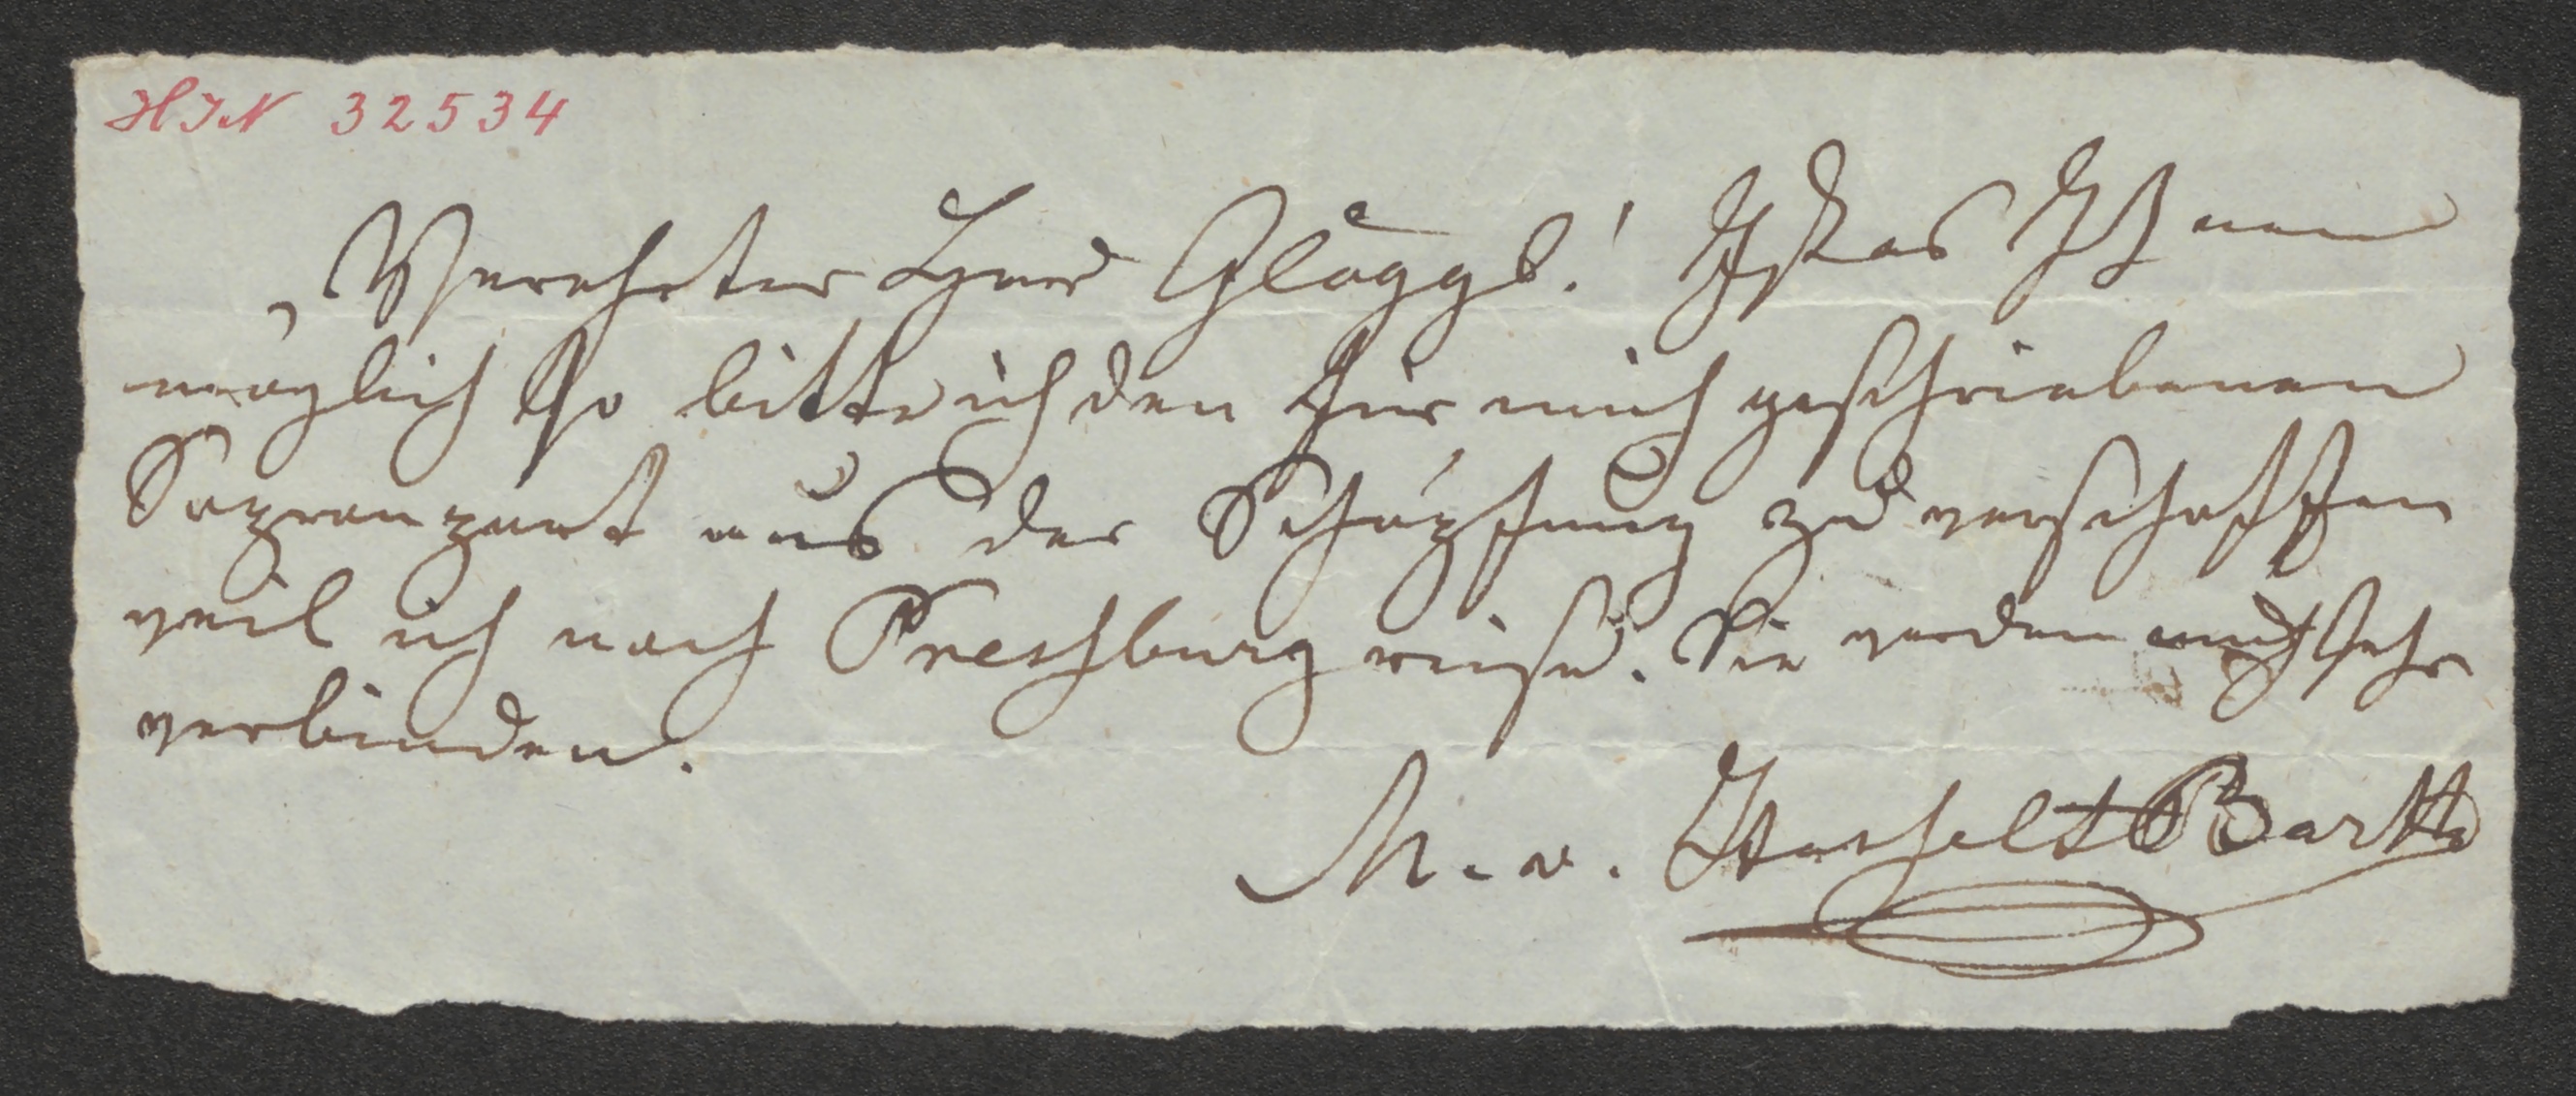 HIN 32534
Verehrter Herr Glöggl! Ist es Ihnen
möglich so bitte ich den für mich geschriebenen
Sopranpart aus der Schöpfung zu verschaffen
weil ich nach Presburg reise. Sie werden mich sehr
verbinden.
M. v. Hasselt Barth